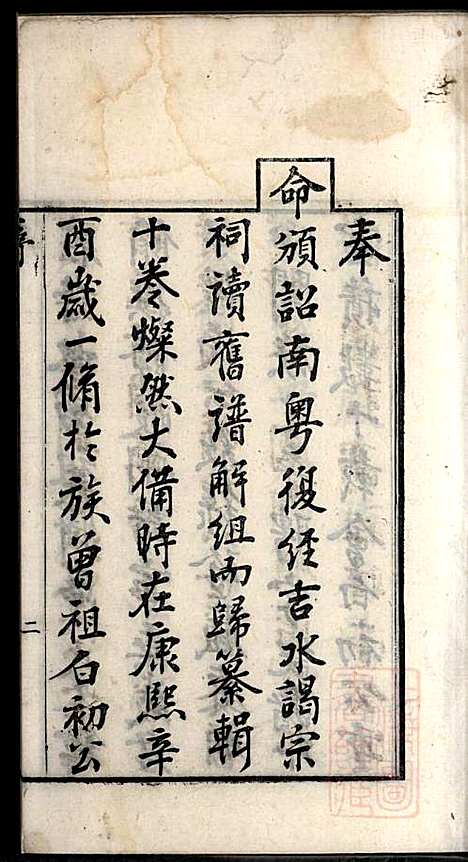 奉
命頒詔南粵復經吉水謁宗
祠讀舊譜解組而歸纂輯
十卷燦然大備時在康熙辛
酉歲一脩於族曾祖白初公
二